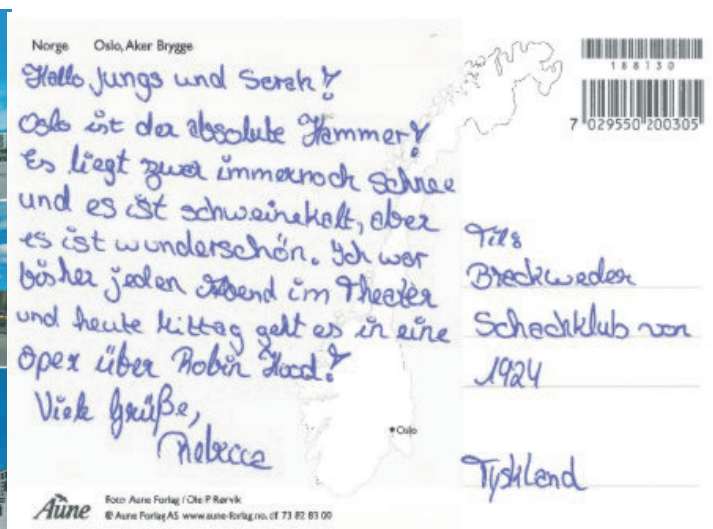 Norge Oslo, Aker Brygge
Hallo Jungs und Sarah!
Oslo ist der absolute Hammer!
Es liegt zwar immernoch Schnee
und es ist schweinekalt, aber
es ist wunderschön. Ich war
bisher jeden Abend im Theater
und heute Mittag geht es in eine
Oper über Robin Hood!
Viele Grüße,
Rebecca
188130
7 029550 200305
Til:
Brackweder
Schachklub von
1924
Tyskland
Oslo
Aune
Foto: Aune Forlag / Ole P Rørvik
© Aune Forlag AS www.aune-forlag.no, tlf 73 82 83 00